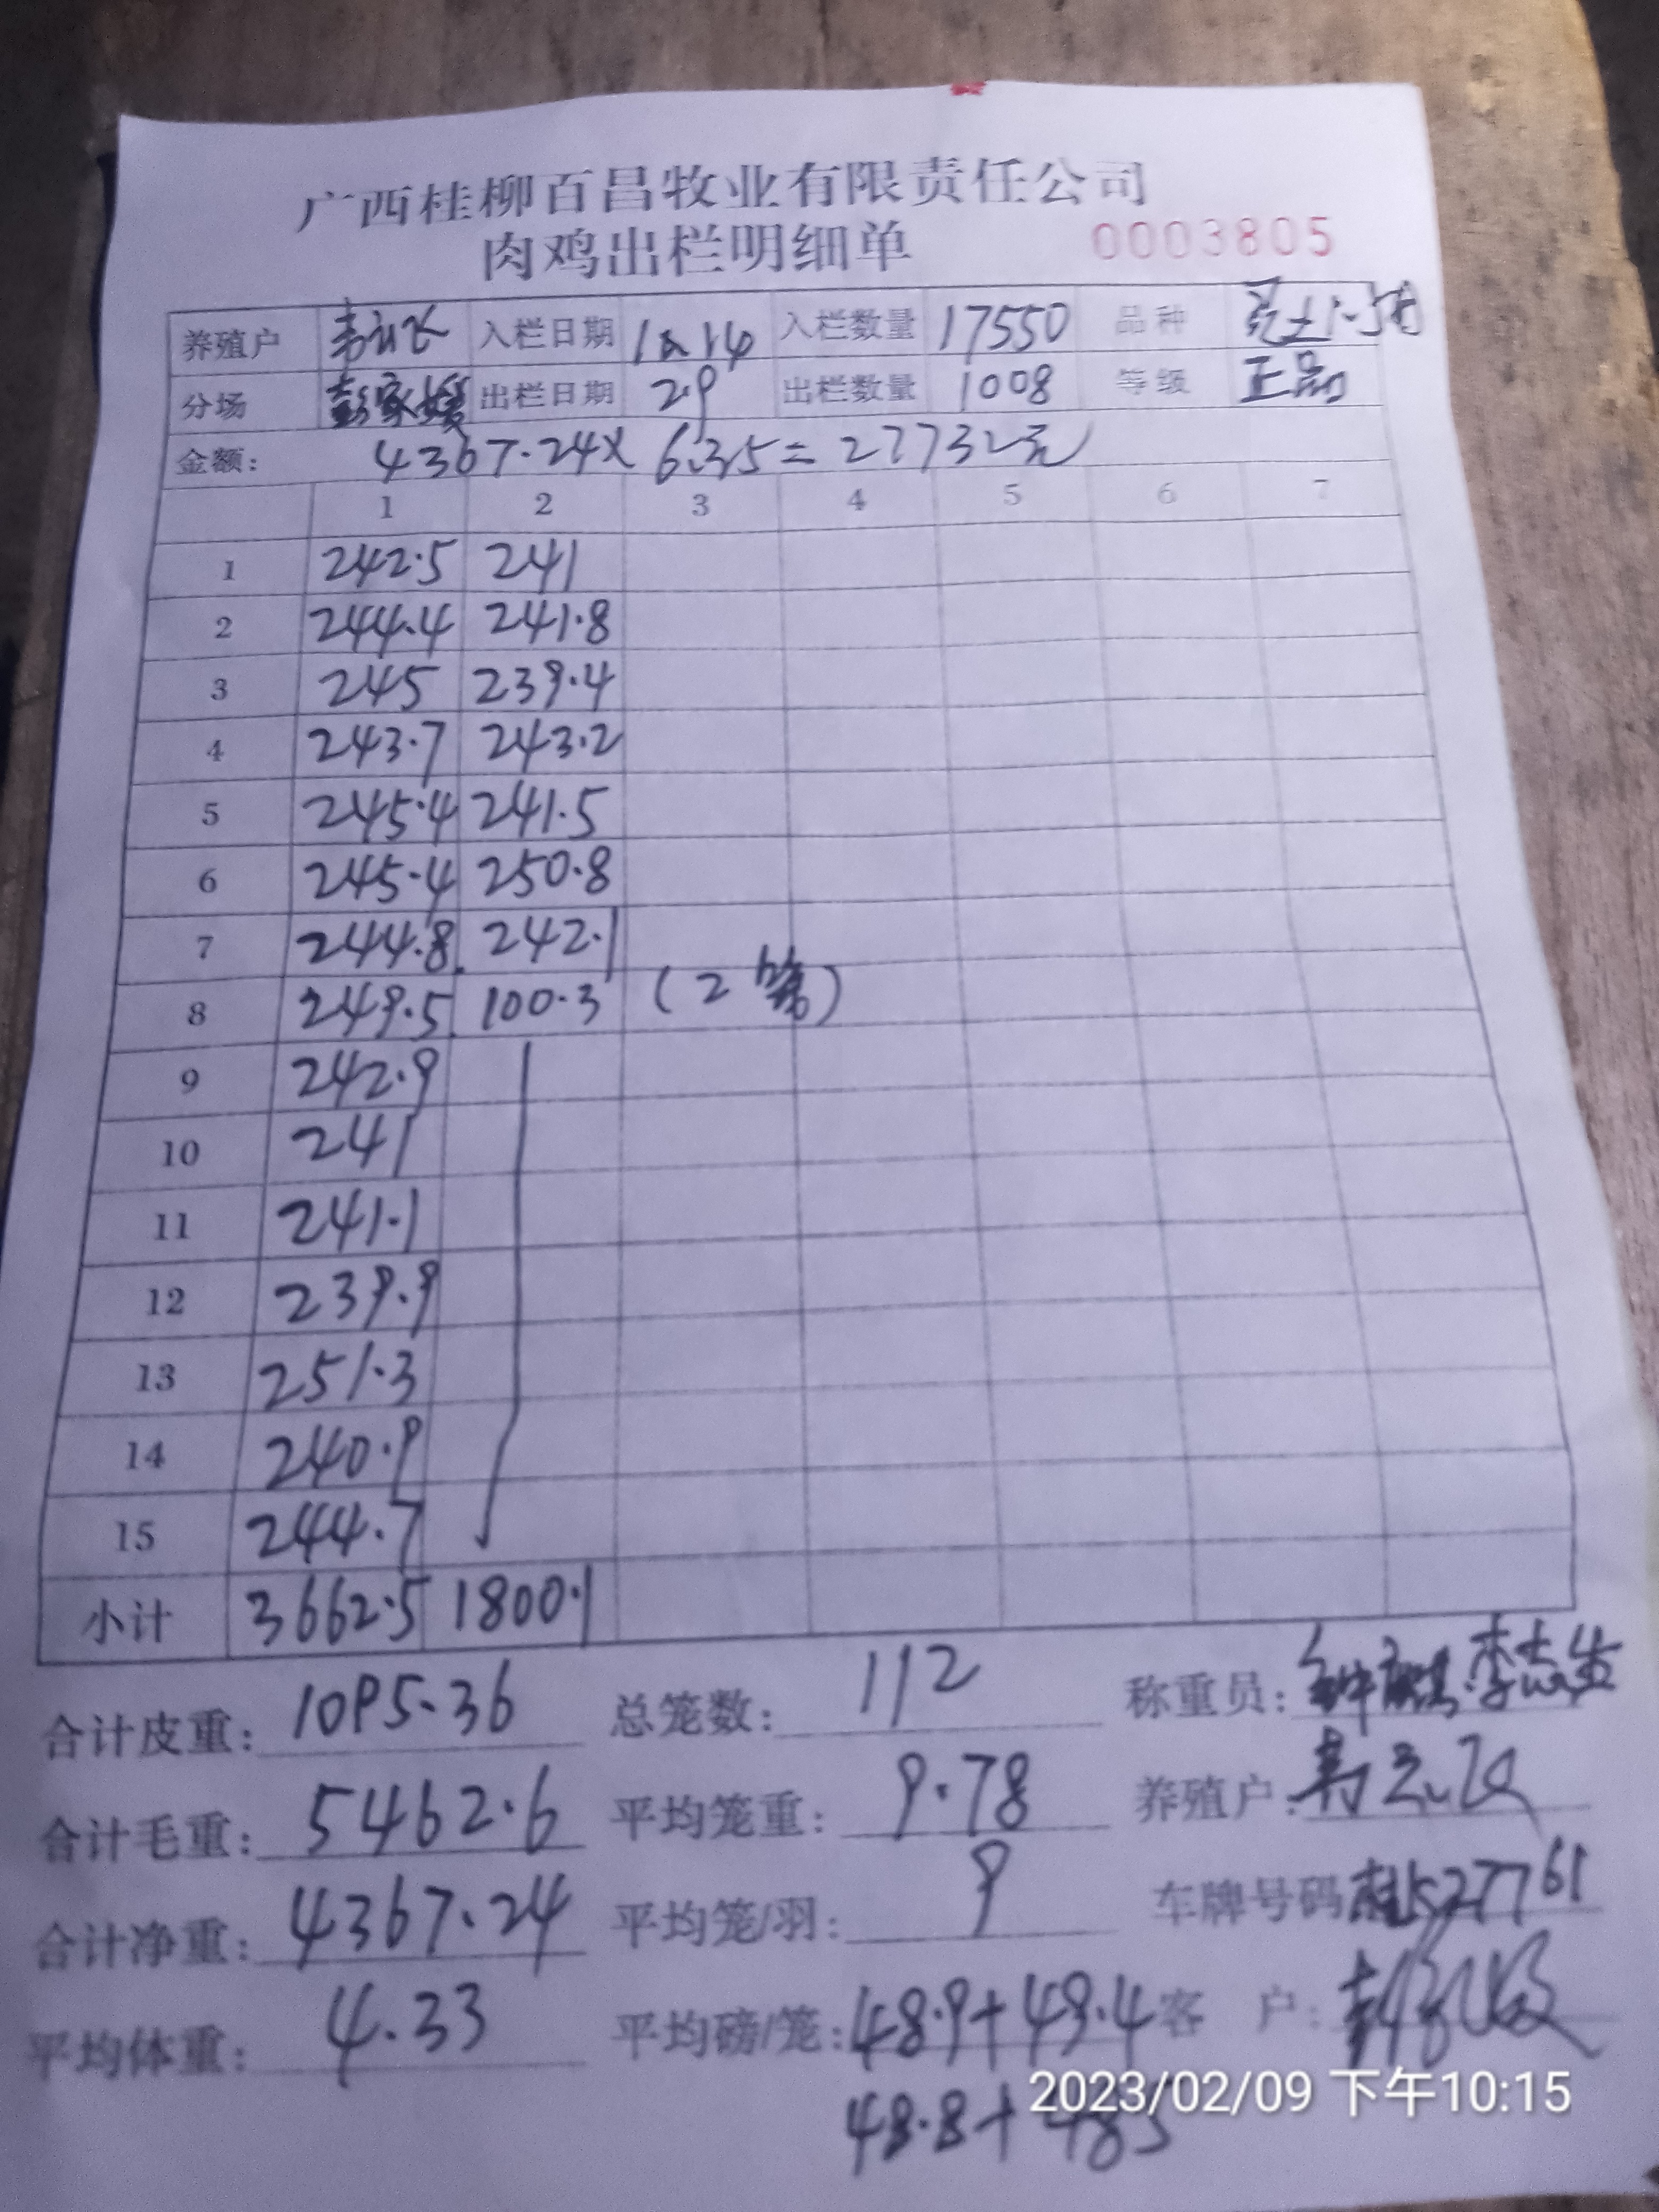 广西桂柳百昌牧业有限责任公司
肉鸡出栏明细单 0003805
养殖户 入栏日期 入栏数量 17550 品种
分场 彭家 出栏日期 2.9 出栏数量 1008 等级 正品
金额: 4367.24× 6.35=27732元
1 2 3 4 5 6 7
1 242.5 241
2 244.4 241.8
3 245 239.4
4 243.7 243.2
5 245.4 241.5
6 245.4 250.8
7 244.8 242.1
8 249.5 100.3 (2笼)
9 242.9
10 241
11 241.1
12 239.9
13 251.3
14 240.9
15 244.7
小计 3662.5 1800.1
合计皮重: 1095.36 总笼数: 112 称重员: 李志生
合计毛重: 5462.6 平均笼重: 9.78 养殖户:
合计净重: 4367.24 平均笼/羽: 9 车牌号码 27761
平均体重: 4.33 平均磅/笼: 48.9+49.4 客 户:
2023/02/09 下午10:15
48.8+